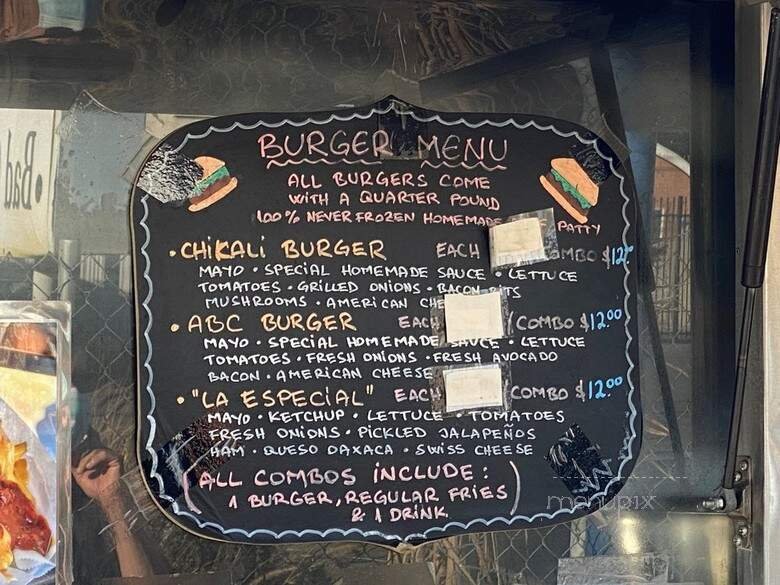 BURGER MENU
ALL BURGERS COME
WITH A QUARTER POUND
100% NEVER FROZEN HOMEMADE PATTY
• CHIKALI BURGER EACH COMBO $12
MAYO • SPECIAL HOMEMADE SAUCE • LETTUCE
TOMATOES • GRILLED ONIONS • BACON BITS
MUSHROOMS • AMERICAN
• ABC BURGER EACH /COMBO $12.00
MAYO • SPECIAL HOMEMADE SAUCE • LETTUCE
TOMATOES • FRESH ONIONS • FRESH AVOCADO
BACON • AMERICAN CHEESE
• "LA ESPECIAL" EACH COMBO $12.00
MAYO • KETCHUP • LETTUCE • TOMATOES
FRESH ONIONS • PICKLED JALAPEÑOS
HAM • QUESO OAXACA • SWISS CHEESE
(ALL COMBOS INCLUDE:
1 BURGER, REGULAR FRIES
& 1 DRINK)
Bad
menupix